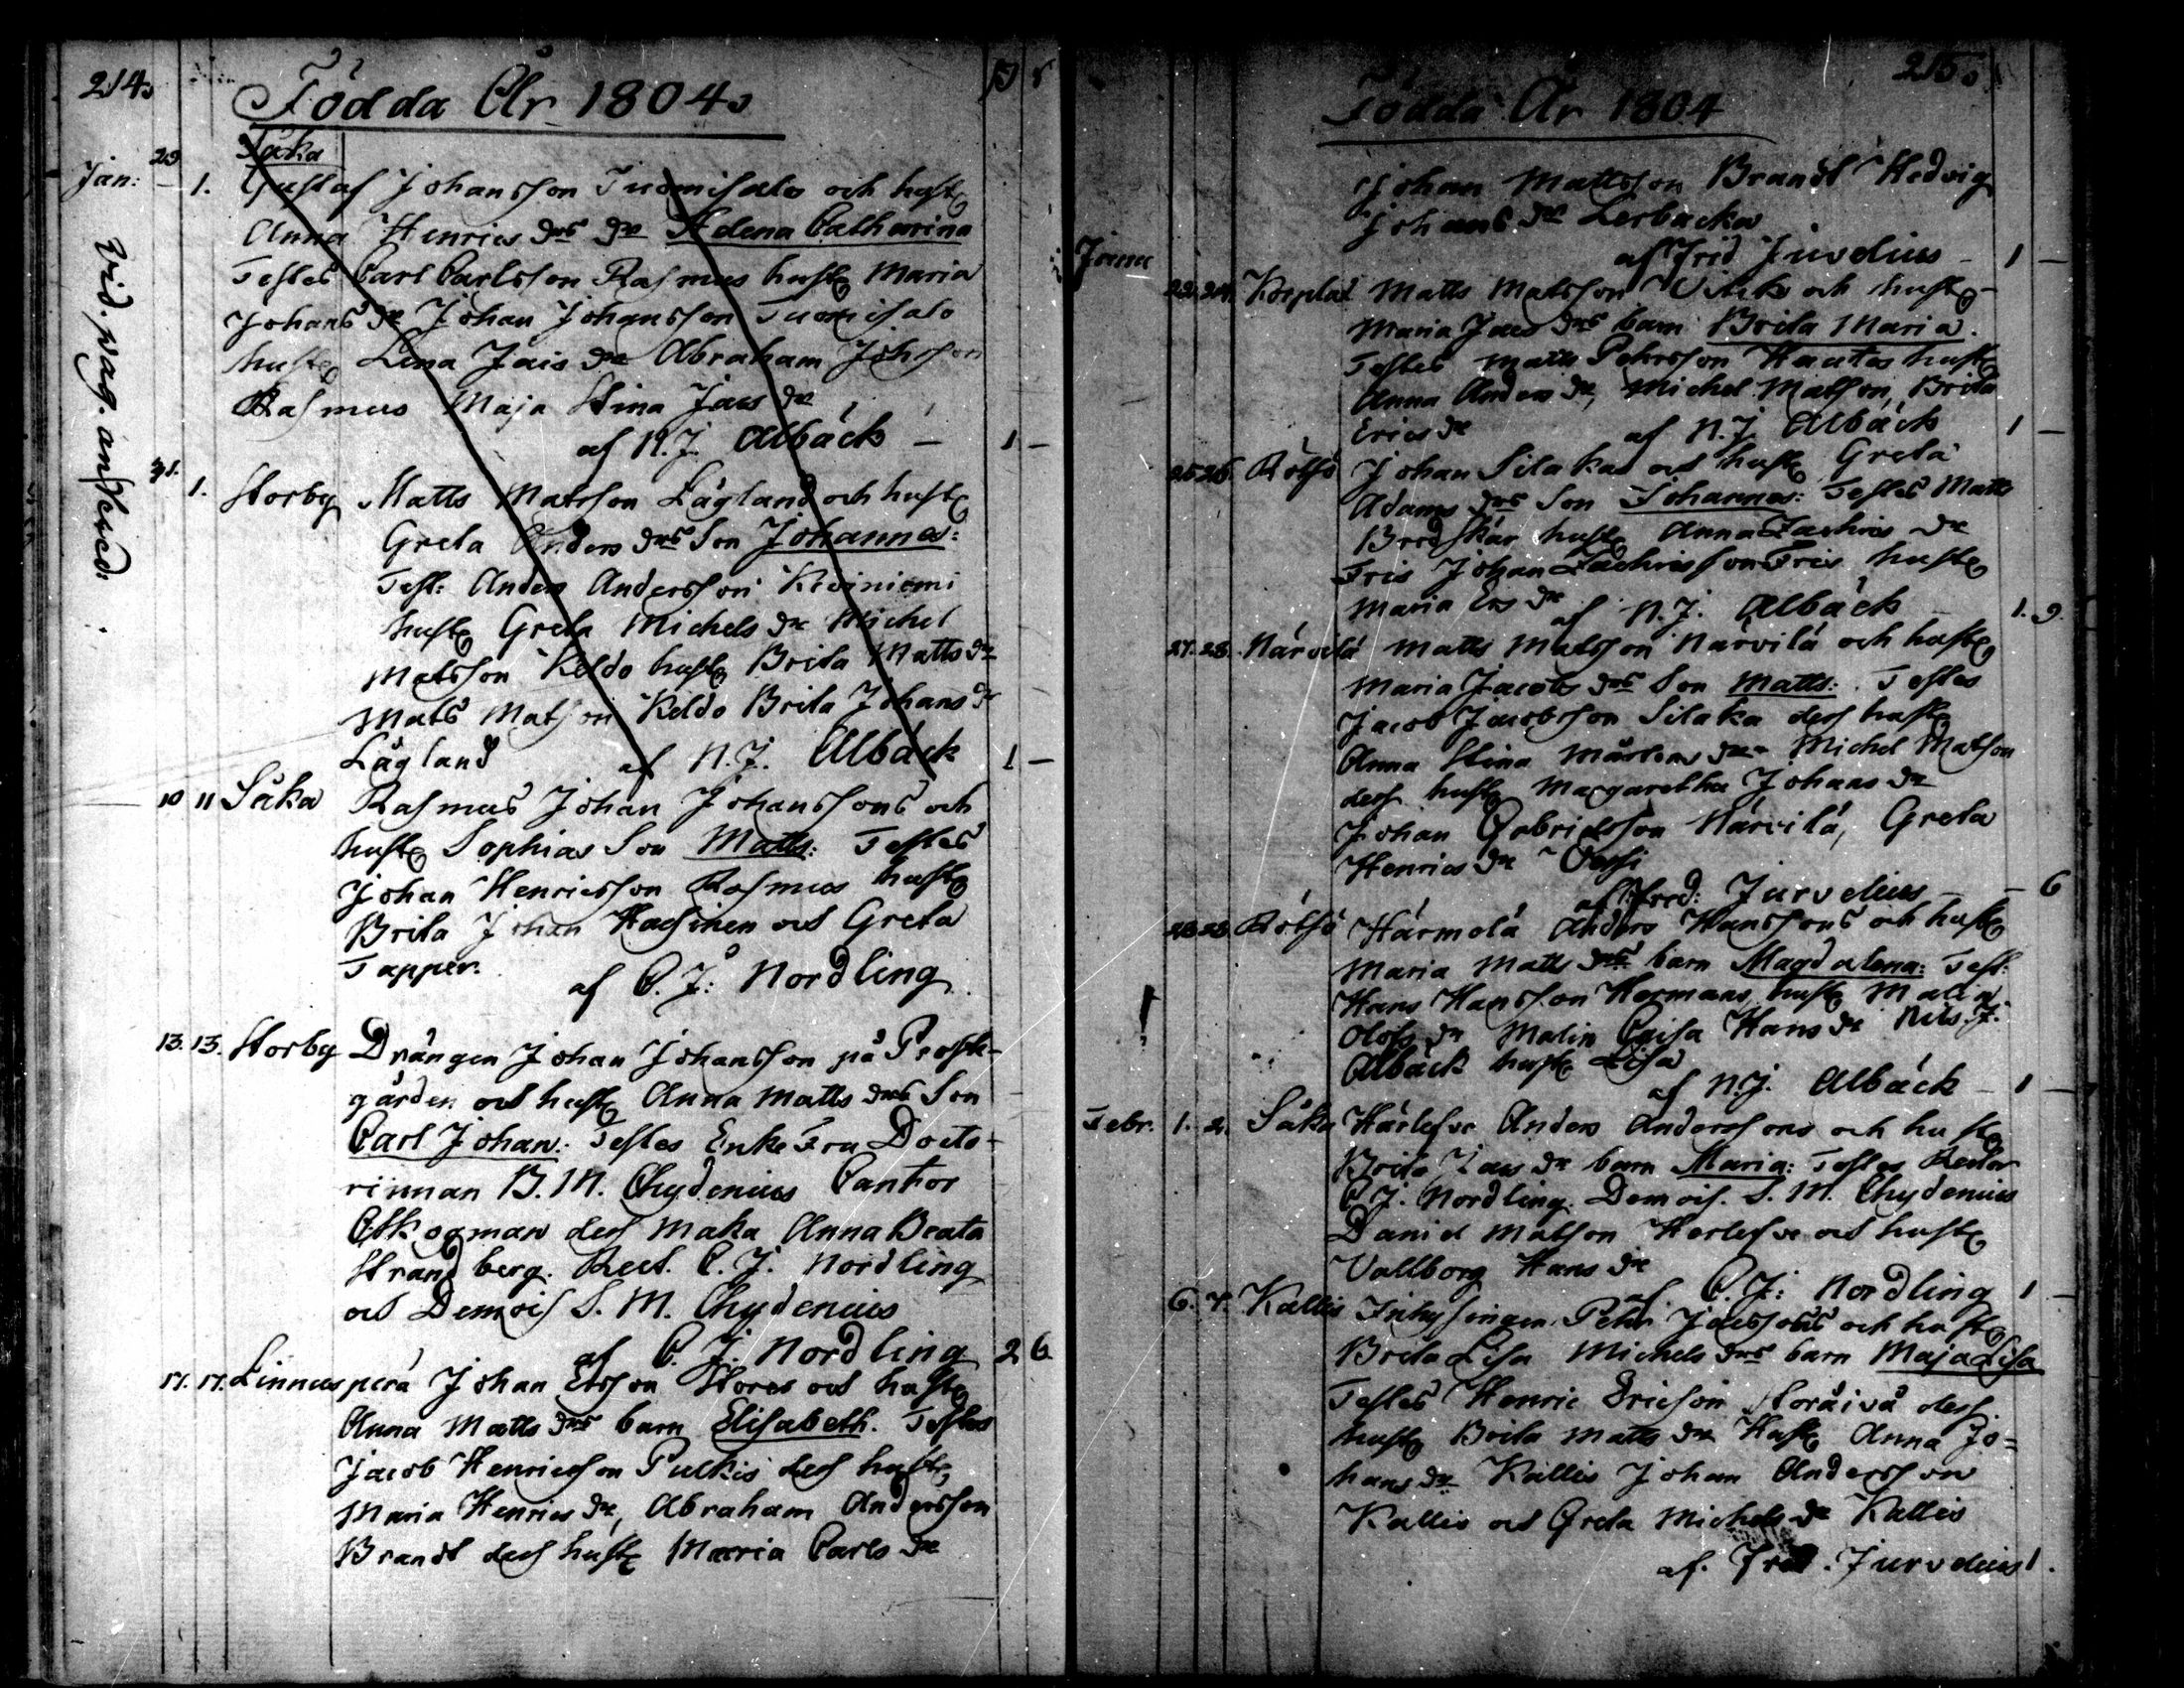 214.
Födda År 1804.
Såka
Jan: 29 1. Gustaf Johansson Tuomisalo och hust
Anna Henrics drs dr Helena Catharina
Testes Carl Carlsson Rasmus hust Maria
Johans dr Johan Johansson Tuomisalo
hust Lena Jacs dr Abraham Johsson
Rasmus Maja Stina Jacs dr
af N.J. Albäck — 1 —
Vid. pag. anteced:
31. 1. Storby Matts Matsson Lågland och hust
Greta Anders drs Son Johannes:
Test: Anders Andersson Kiviniemi
hust Greta Michels dr Michel
Matsson Keldo hust Brita Matts dr
Mats Matson Keldo Brita Johans dr
Lågland af N.J. Albäck 1 —
10 11 Såka Rasmus Johan Johanssons och
hust Sophias Son Matts: Testes
Johan Henricsson Rasmus hust
Brita Johan Hasinen och Greta
Tapper.
af C.J: Nordling
13. 13. Storby Drängen Johan Johansson på Prost-
gården och hust Anna Matts drs Son
Carl Johan: Testes Enke Fru Docto-
rinnan B.M. Chydenius Cantor
Skogman dess Maka Anna Beata
Strandberg. Rect. C.J. Nordling
och Demois S.M. Chydenius
af C.J. Nordling 2 6
17. 17. Linnusperä Johan Ersson Stores och hust
Anna Matts drs barn Elisabeth. Testes
Jacob Henricsson Pulkis dess hust,
Maria Henrics dr, Abraham Andersson
Brandt dess hust Maria Carls dr
215.
Födda År 1804
Johan Mattsson Brandt Hedvig
Johans dr Lerbacka
af Frid Jurvelius — 1 —
Janu
22. 24. Korplax Matts Matsson och hust
Maria Jacs drs barn Brita Maria.
Testes Matts Pehrsson Hautas hust
Anna Anders dr, Michel Matson, Brita
Erics dr af N.J. Albäck 1 —
25 26. Rötsö Johan Silakas och hust Greta
Adams drs Son Johannes: Testes Matts
Bredskär hust Anna Zachris dr
Fris Johan Zachrisson Fris hust
Maria Ers dr af N.J. Albäck 1. 9.
27. 28. Närvilä Matts Matsson Närvilä och hust
Maria Jacobs drs Son Matts: Testes
Jacob Jacobsson Silaka dess hust
Anna Stina Mårtens dr Michel Matson
dess hust Margaretha Johans dr
Johan Gabrielsson Närvilä, Greta
Henrics dr
af Fred: Jurvelius — — 6
28 28 Rötsö Härmälä Anders Hanssons och hust
Maria Matts drs barn Magdalena: Test:
Hans Hansson Hermans hust Malin
Olofs dr Malin Caisa Hans dr Nils J.
Albäck hust Lisa
af N.J. Albäck — 1 —
Febr. 1. 2. Såka Härlefve Anders Anderssons och hust
Brita Jacs dr barn Maria: Testes Rector
C.J. Nordling. Demois. S.M. Chydenius
Daniel Matson Herlefve och hust
Vallborg Hans dr
af C.J: Nordling 1 —
6. 7. Kallis Inhysingen Pehr Jacssons och hust
Brita Lisa Michels drs barn Maja Lisa
Testes Henric Ericson Storåivå dess
hust Brita Matts dr Hust Anna Jo=
hans dr Kallis Johan Andersson
Kallis och Greta Michels dr Kallis
af. Fred. Jurvelius 1.